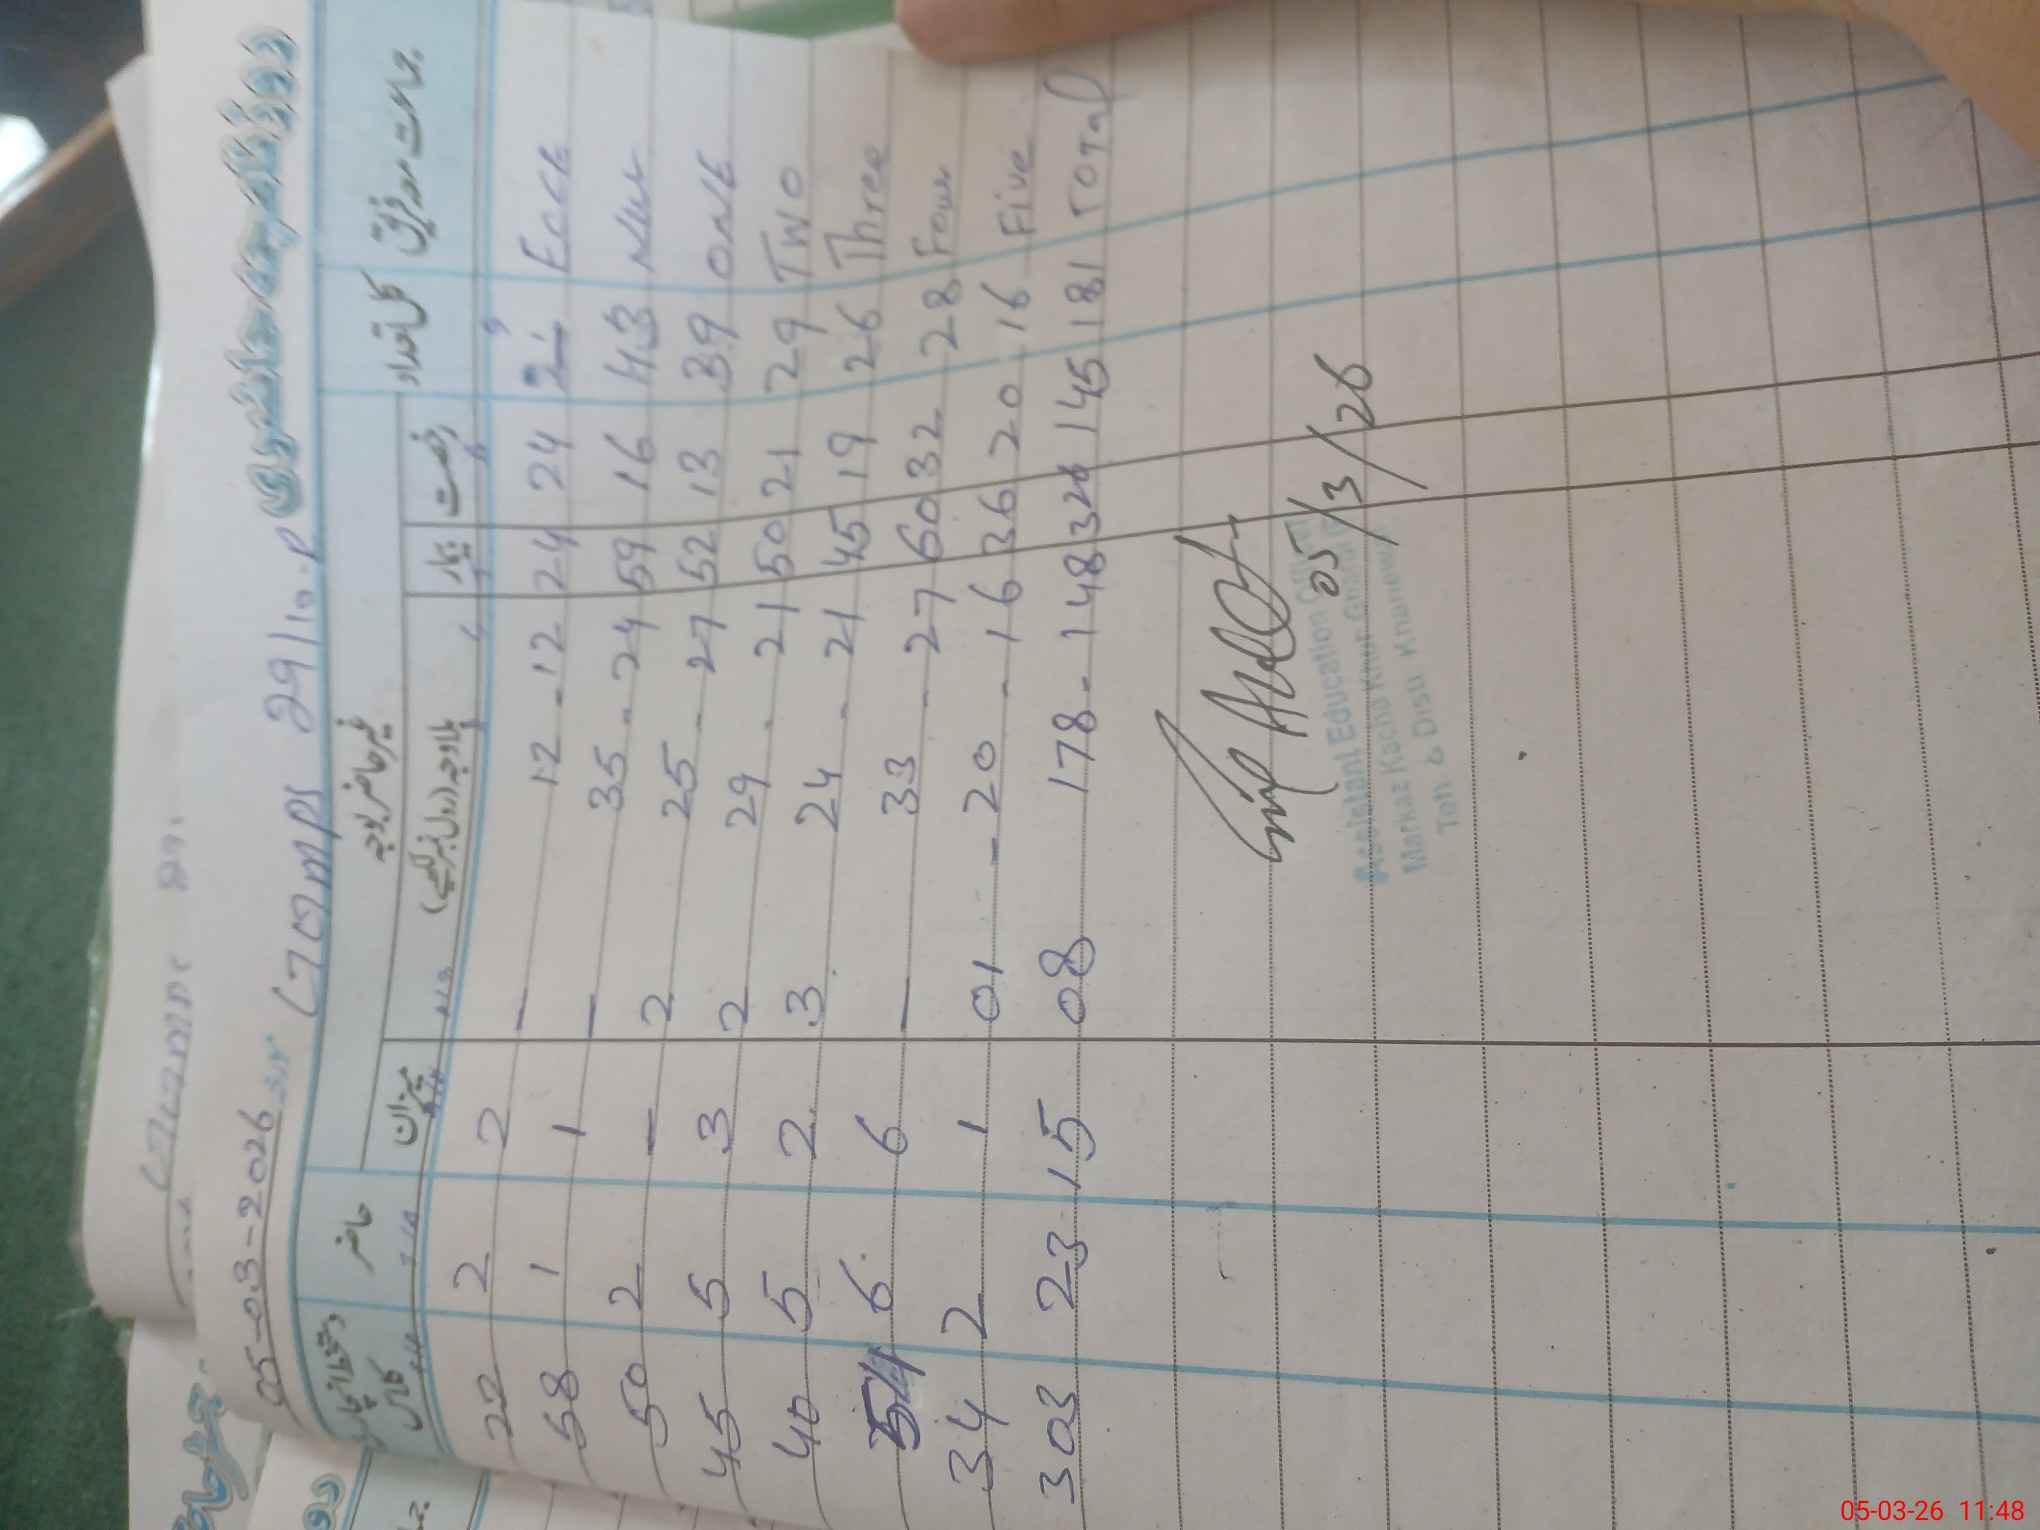 05-03-2026 29/10-R
جماعت مع فریق کل تعداد غیر حاضر بوجہ حاضر دستخط انچارج کلاس
رخصت بیمار بلاوجہ (رول نمبر لکھیے) میزان
22 2 2 — 12 - 12 24 24 ECCE
58 1 1 — 35 - 24 59 16 43 Nur
50 2 — 2 25 - 27 52 13 39 ONE
45 5 3 2 29 - 21 50 21 29 TWO
40 5 2 3 24 - 21 45 19 26 Three
54 6 6 — 33 - 27 60 32 28 Four
34 2 1 01 - 20 - 16 36 20 16 Five
303 23 15 08 178 - 148 326 145 181 Total
05/3/26
Assistant Education Officer
Markaz Kacha Khuh
Teh & Distt Khanewal
05-03-26 11:48